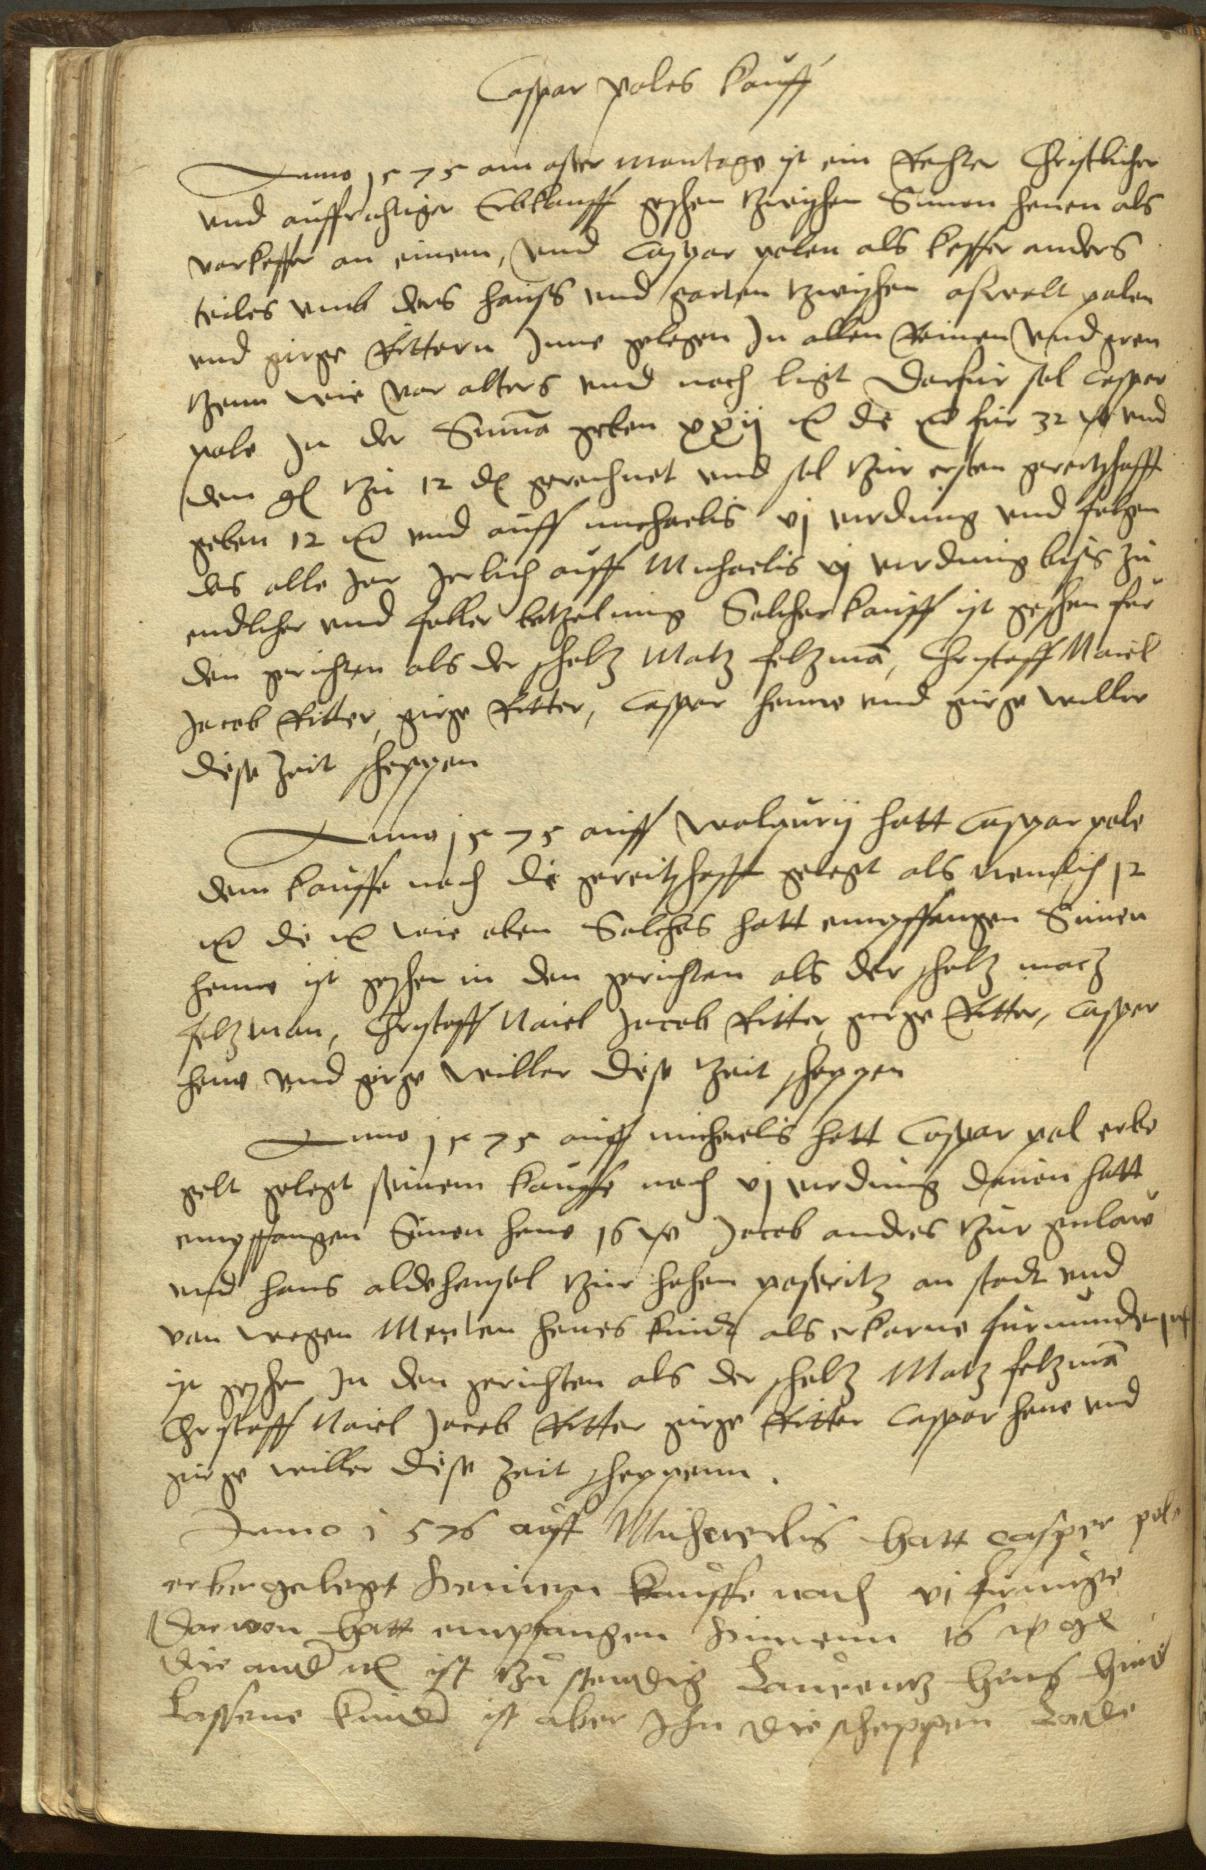 Caspar poles kauff
Anno 1575 am oster montage ist ein Rechter Christlicher
vnd auffrichtiger Erbkauff geschen tzwischen Simon henen als
vorkeffer an einem, vnd Caspar polen als keffer anders
teiles vmb das hauss vnd garten tzwischen oswalt polen
vnd girge Rittern Inne gelegen In allen Reinen vnd gren
tzenn wie vor alters vnd noch ligt Darfur sol Caspar
pole In der Suma geben xxij die fur 32 vnd
den gl tzu 12 d gerechnet vnd sol tzur ersten gereitschafft
geben 12 vnd auff michaelis vj virdung vnd folgen
des alle Jar Jerlich auff Michaelis vj virdung biss zu
endlicher vnd foller betzalung Solcher kauff ist geschen fur
den gerichten als der scholz Matz folzma, Christoff Naiel
Jacob Ritter, girge Ritter, Caspar henne vnd girge willer
diese Zeit scheppen
Anno 1575 auff walpurij hatt Caspar pole
dem kauffe nach die gereitschafft gelegt als nemlich 12
die wie oben Solches hatt empffangen Simon
henne ist geschen in den gerichten als der scholz macz
folzman, Christoff Naiel Jacob Ritter girge Ritter, Casper
hene vnd girge willer diese tzeit scheppen
Anno 1575 auff michaelis hatt Caspar pol erbe
gelt gelegt seinem kauffe nach vj virdung dauon hatt
empffangen Simon hene 16 Jacob andres tzur
vnd hans aldehensel tzur hohen poseritz an stadt vnd
von wegen Merten henes kindr als erkorne furmunde
ist geschen In den gerichten als der scholz Matz folzma
Christoff Naiel Jacob Ritter girge Ritter Caspar hene vnd
girge willer diese Zeit scheppenn.
Anno 1576 auff Michaelis hatt Casper pole
erbergelegt seinem kauffe nach vj
darvon hatt empfangen Simenn 16
die and ist tzu stendig Laurentz hens hind
Lassene kinder ist aber Ihn die scheppen Lade